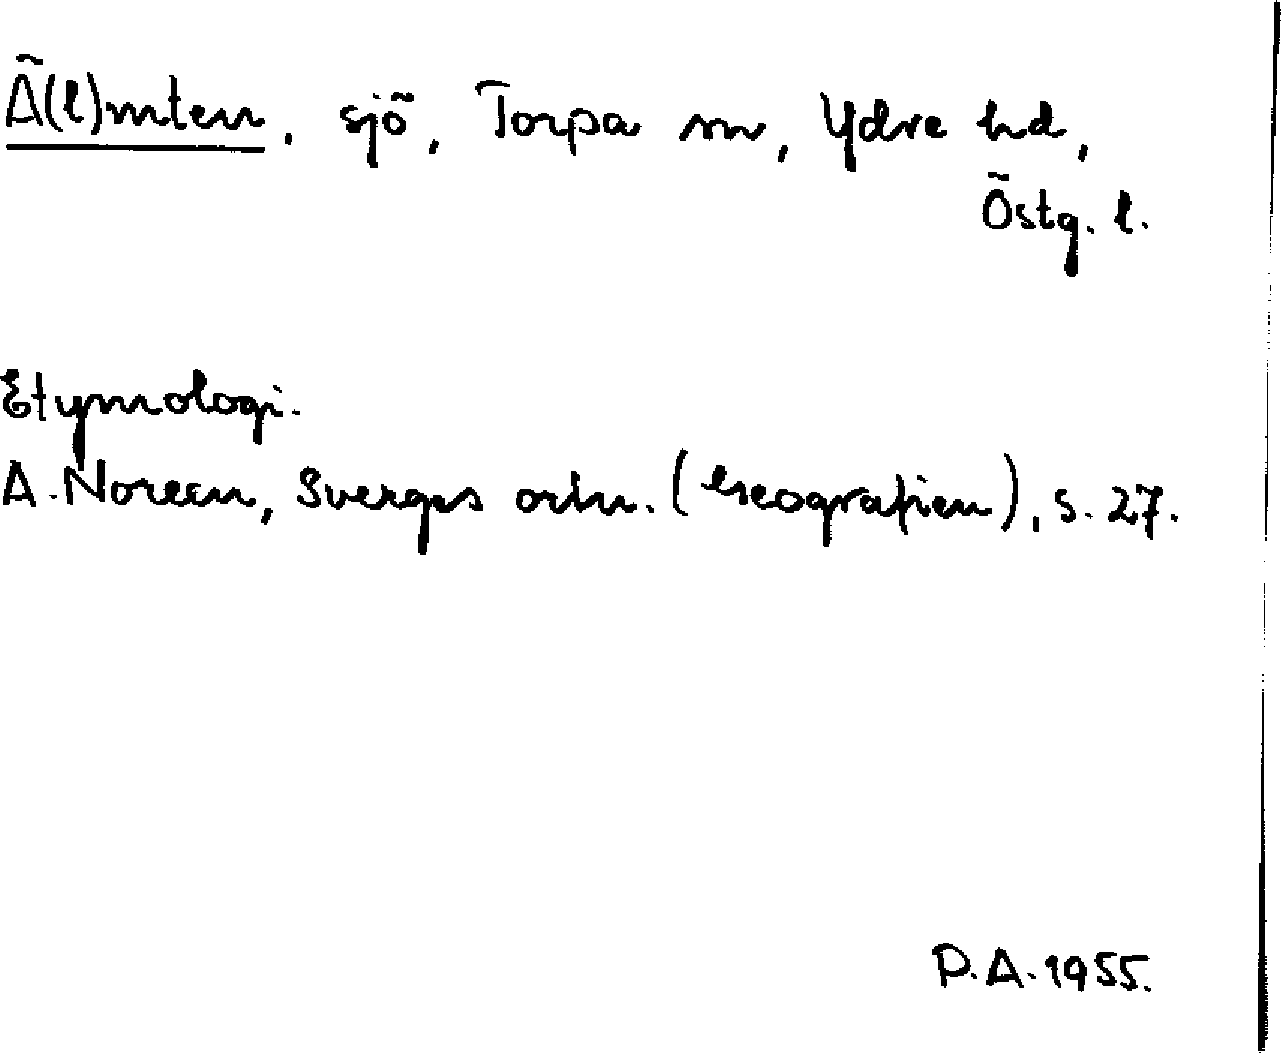 Ä(l)mten, sjö, Torpa sn, Ydre hd,
Östg. l.
Etymologi.
A. Noreen, Sverges ortn. (Geografien), s. 27.
P.A. 1955.